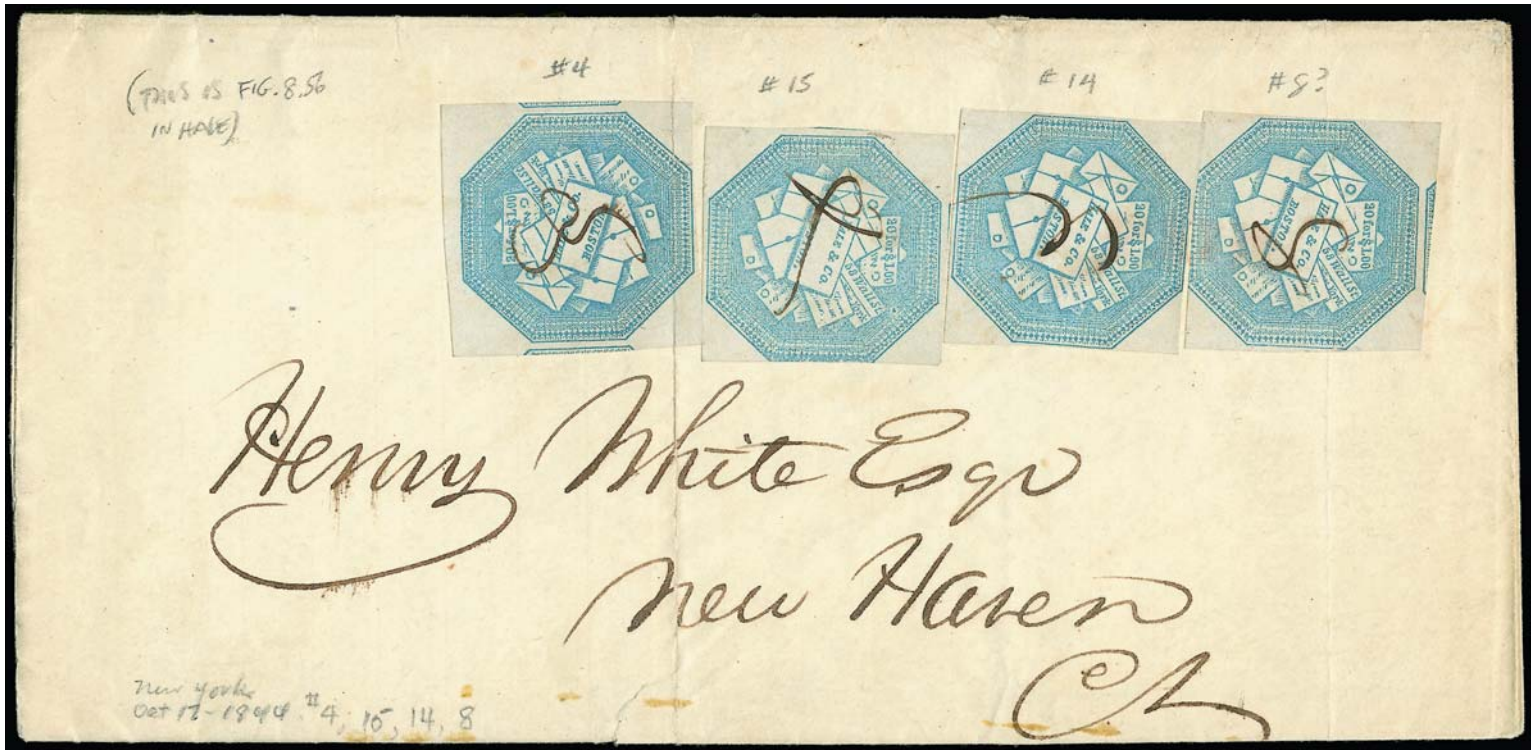 #4 #15 #14 #8?
(THIS IS FIG. 8.56
IN HALE)
20 for $1.00
HALE & CO.
BOSTON
20 for $1.00
HALE & CO.
20 for $1.00
HALE & CO.
BOSTON
20 for $1.00
& CO.
BOSTON
Henry White Esqr
New Haven
Ct
New York
Oct 17-1844. #4, 15, 14, 8